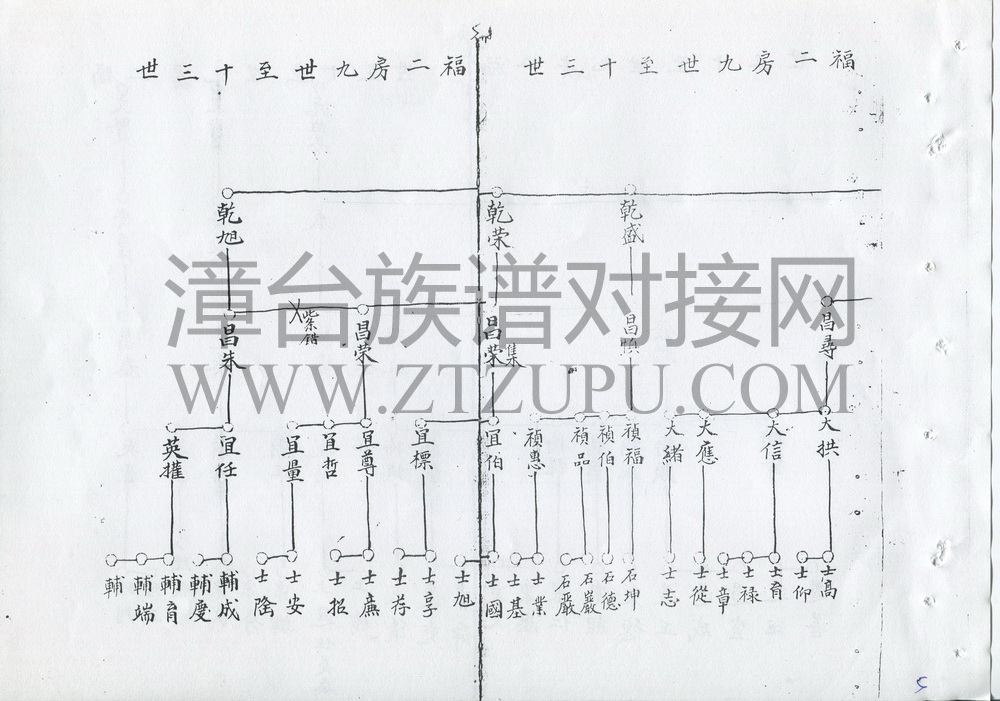 福二房九世至十三世
福二房九世至十三世
乾盛
乾荣
乾旭
昌尋
昌慎
昌荣
集
昌荣
紫錯
昌朱
大拱
大信
大應
大緒
禎福
禎伯
禎品
禎惠
宜伯
宜標
宜尊
宜哲
宜量
宜任
英㩴
士高
士仰
士育
士禄
士章
士從
士志
石坤
石德
石巖
石嚴
士業
士基
士國
士旭
士享
士荐
士廉
士招
士安
士隆
輔成
輔度
輔育
輔端
輔
漳台族谱对接网
WWW.ZTZUPU.COM
5